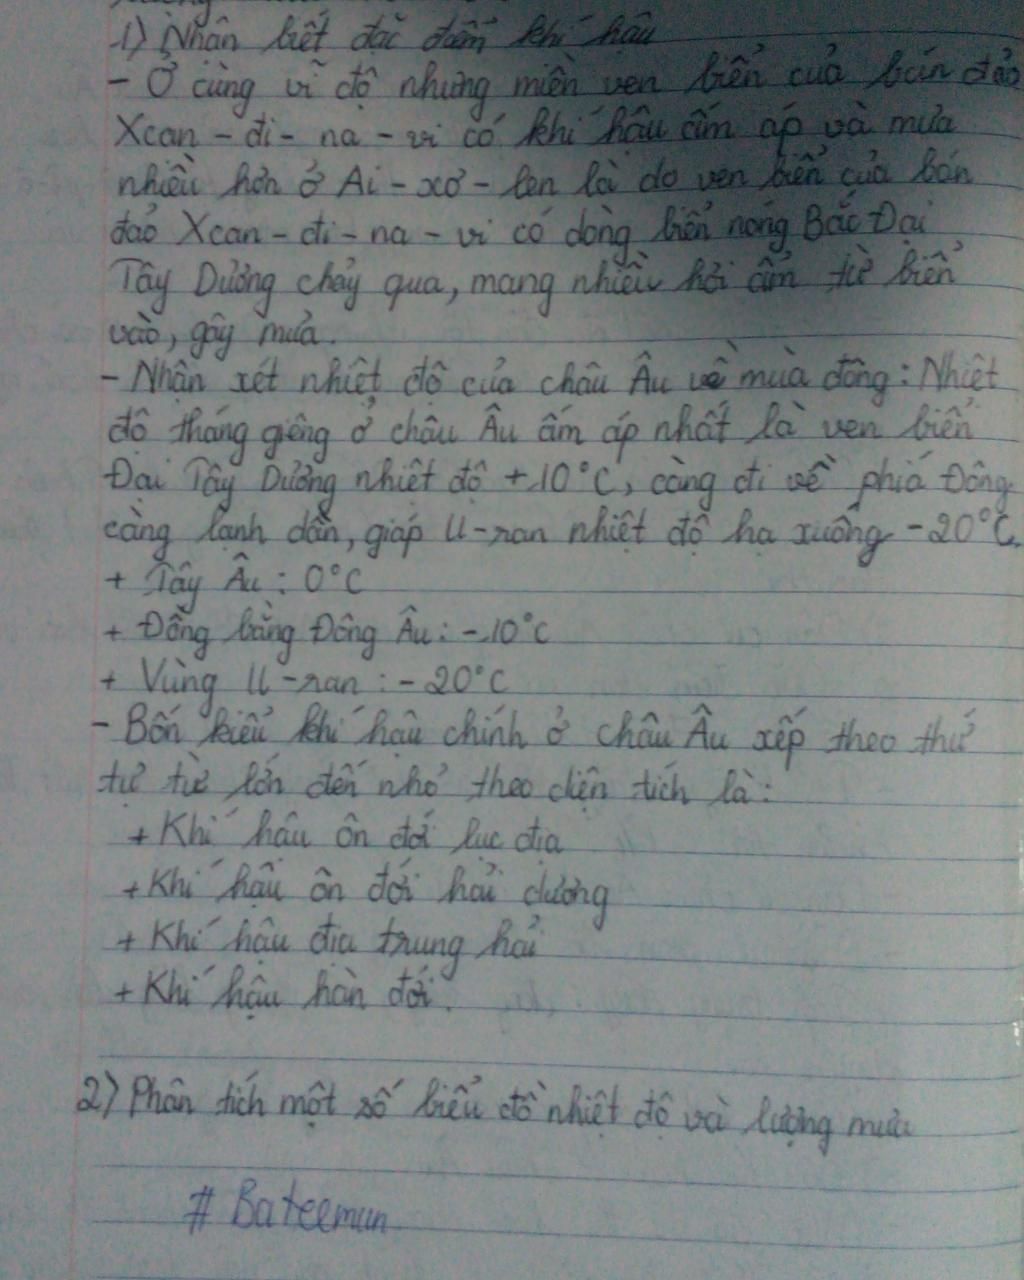 1) Nhận biết đặc điểm khí hậu
- Ở cùng vĩ độ nhưng miền ven biển của bán đảo
Xcan - đi - na - vi có khí hậu ấm áp và mưa
nhiều hơn ở Ai - xơ - len là do ven biển của bán
đảo Xcan - đi - na - vi có dòng biển nóng Bắc Đại
Tây Dương chảy qua, mang nhiều hơi ẩm từ biển
vào, gây mưa.
- Nhận xét nhiệt độ của châu Âu về mùa đông: Nhiệt
độ tháng giêng ở châu Âu ấm áp nhất là ven biển
Đại Tây Dương nhiệt độ +10°C, càng đi về phía Đông
càng lạnh dần, giáp U-ran nhiệt độ hạ xuống -20°C.
+ Tây Âu : 0°C
+ Đồng bằng Đông Âu: -10°C
+ Vùng U-ran : -20°C
- Bốn kiểu khí hậu chính ở châu Âu xếp theo thứ
tự từ lớn đến nhỏ theo diện tích là:
+ Khí hậu ôn đới lục địa
+ Khí hậu ôn đới hải dương
+ Khí hậu địa trung hải
+ Khí hậu hàn đới.
2) Phân tích một số biểu đồ nhiệt độ và lượng mưa
# Bateemun